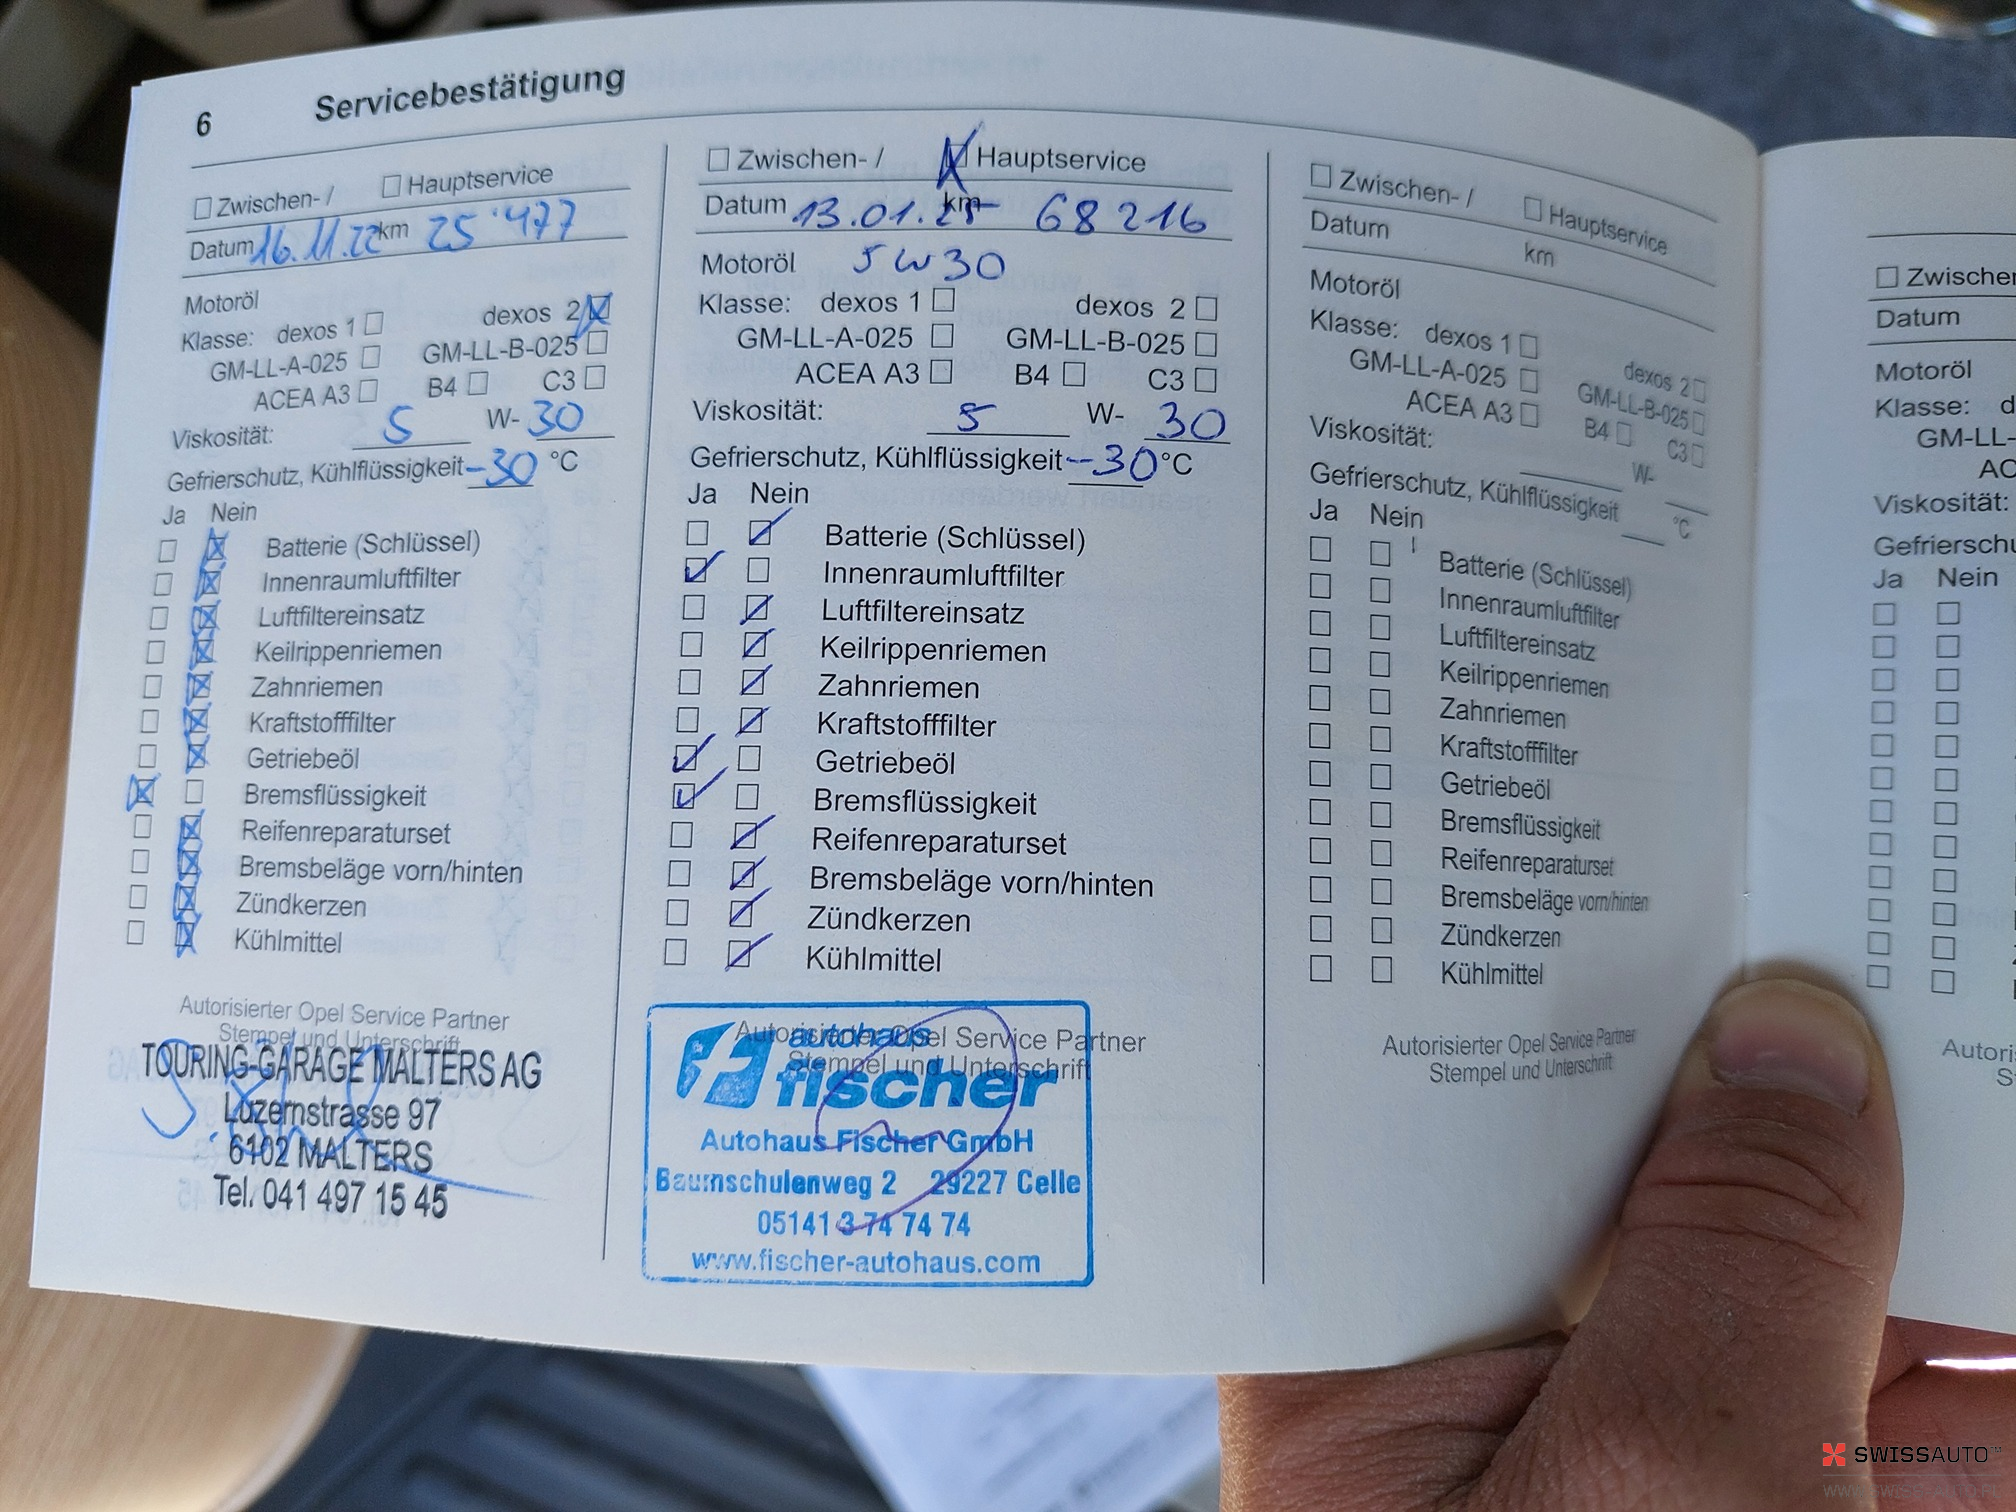 6 Servicebestätigung
Zwischen- / Hauptservice
Datum 16.11.22 km 25'477
Motoröl
Klasse: dexos 1 dexos 2
GM-LL-A-025 GM-LL-B-025
ACEA A3 B4 C3
Viskosität: 5 W- 30
Gefrierschutz, Kühlflüssigkeit -30 °C
Ja Nein
Batterie (Schlüssel)
Innenraumluftfilter
Luftfiltereinsatz
Keilrippenriemen
Zahnriemen
Kraftstofffilter
Getriebeöl
Bremsflüssigkeit
Reifenreparaturset
Bremsbeläge vorn/hinten
Zündkerzen
Kühlmittel
Autorisierter Opel Service Partner
Stempel und Unterschrift
TOURING-GARAGE MALTERS AG
Luzernstrasse 97
6102 MALTERS
Tel. 041 497 15 45
Zwischen- / Hauptservice
Datum 13.01.25 km 68 216
Motoröl 5W30
Klasse: dexos 1 dexos 2
GM-LL-A-025 GM-LL-B-025
ACEA A3 B4 C3
Viskosität: 5 W- 30
Gefrierschutz, Kühlflüssigkeit -30 °C
Ja Nein
Batterie (Schlüssel)
Innenraumluftfilter
Luftfiltereinsatz
Keilrippenriemen
Zahnriemen
Kraftstofffilter
Getriebeöl
Bremsflüssigkeit
Reifenreparaturset
Bremsbeläge vorn/hinten
Zündkerzen
Kühlmittel
Autorisierter Opel Service Partner
Stempel und Unterschrift
autohaus
fischer
Autohaus Fischer GmbH
Baumschulenweg 2 29227 Celle
05141 3 74 74 74
www.fischer-autohaus.com
Zwischen- / Hauptservice
Datum km
Motoröl
Klasse: dexos 1 dexos 2
GM-LL-A-025 GM-LL-B-025
ACEA A3 B4 C3
Viskosität: W-
Gefrierschutz, Kühlflüssigkeit °C
Ja Nein
Batterie (Schlüssel)
Innenraumluftfilter
Luftfiltereinsatz
Keilrippenriemen
Zahnriemen
Kraftstofffilter
Getriebeöl
Bremsflüssigkeit
Reifenreparaturset
Bremsbeläge vorn/hinten
Zündkerzen
Kühlmittel
Autorisierter Opel Service Partner
Stempel und Unterschrift
Zwischen
Datum
Motoröl
Klasse: d
GM-LL-
AC
Viskosität:
Gefrierschu
Ja Nein
Autori
S
SWISSAUTO